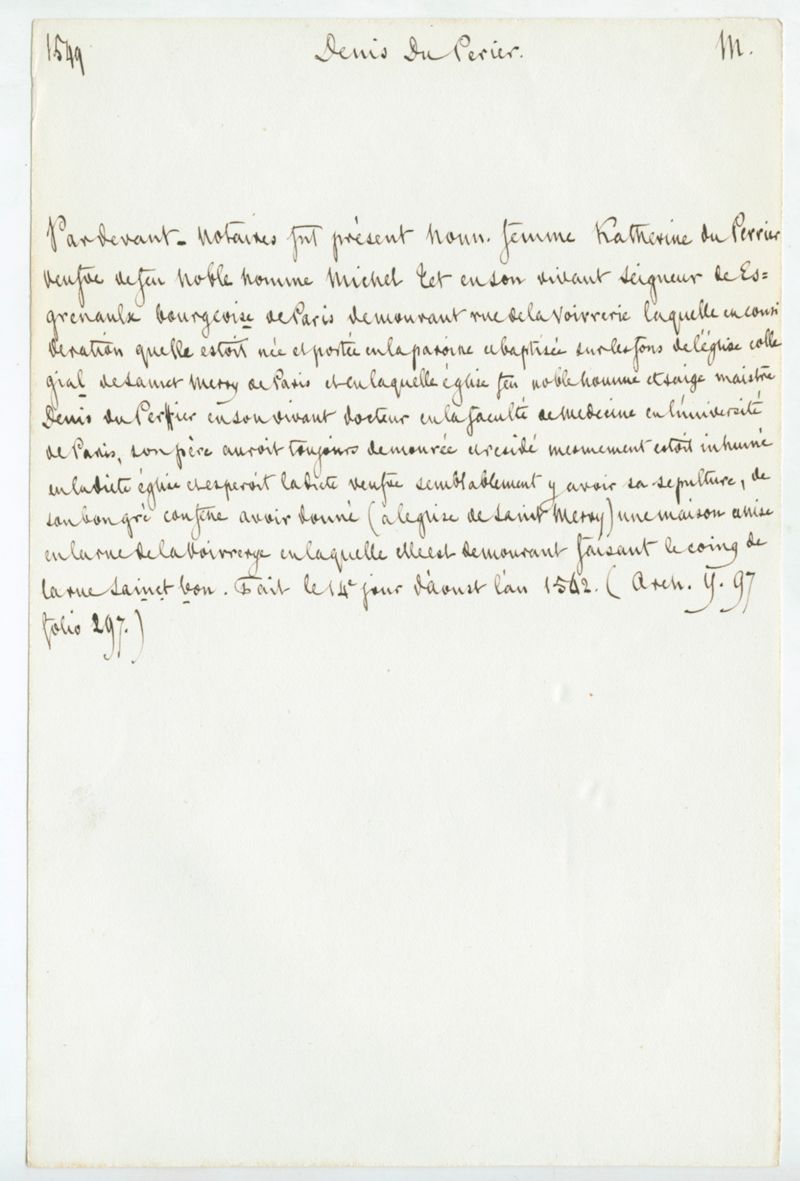 1549 Denis Du Perier. M.
Pardevant - notaires fut présent honn. femme Katherine du Perrier
veufve de feu noble homme Michel Tet en son vivant seigneur de Es=
grenaulx bourgeoise de Paris demourant rue de la Voirrerie laquelle en consi
deration quelle estoit née et portée en la paroisse et baptisée sur les fons de l'église colle
gial de Sainct Merry de Paris et en laquelle église feu noble homme et saige maistre
Denis du Perrier en son vivant docteur en la faculté de Medecine en l'université
de Paris, son père auroit toujours demourée et residé mesmement estoit inhumé
en la dicte église et esperoit la dicte veufve semblablement y avoir sa sepulture, de
son bon gré confesse avoir donné (a l'eglise de Saint Merry) une maison assise
en la rue de la Voirrerye en laquelle elle est demourant faisant le coing de
la rue Sainct bon. Fait le 14e jour d'aoust l'an 1542. (Arch. Y. 97
folio 297.)